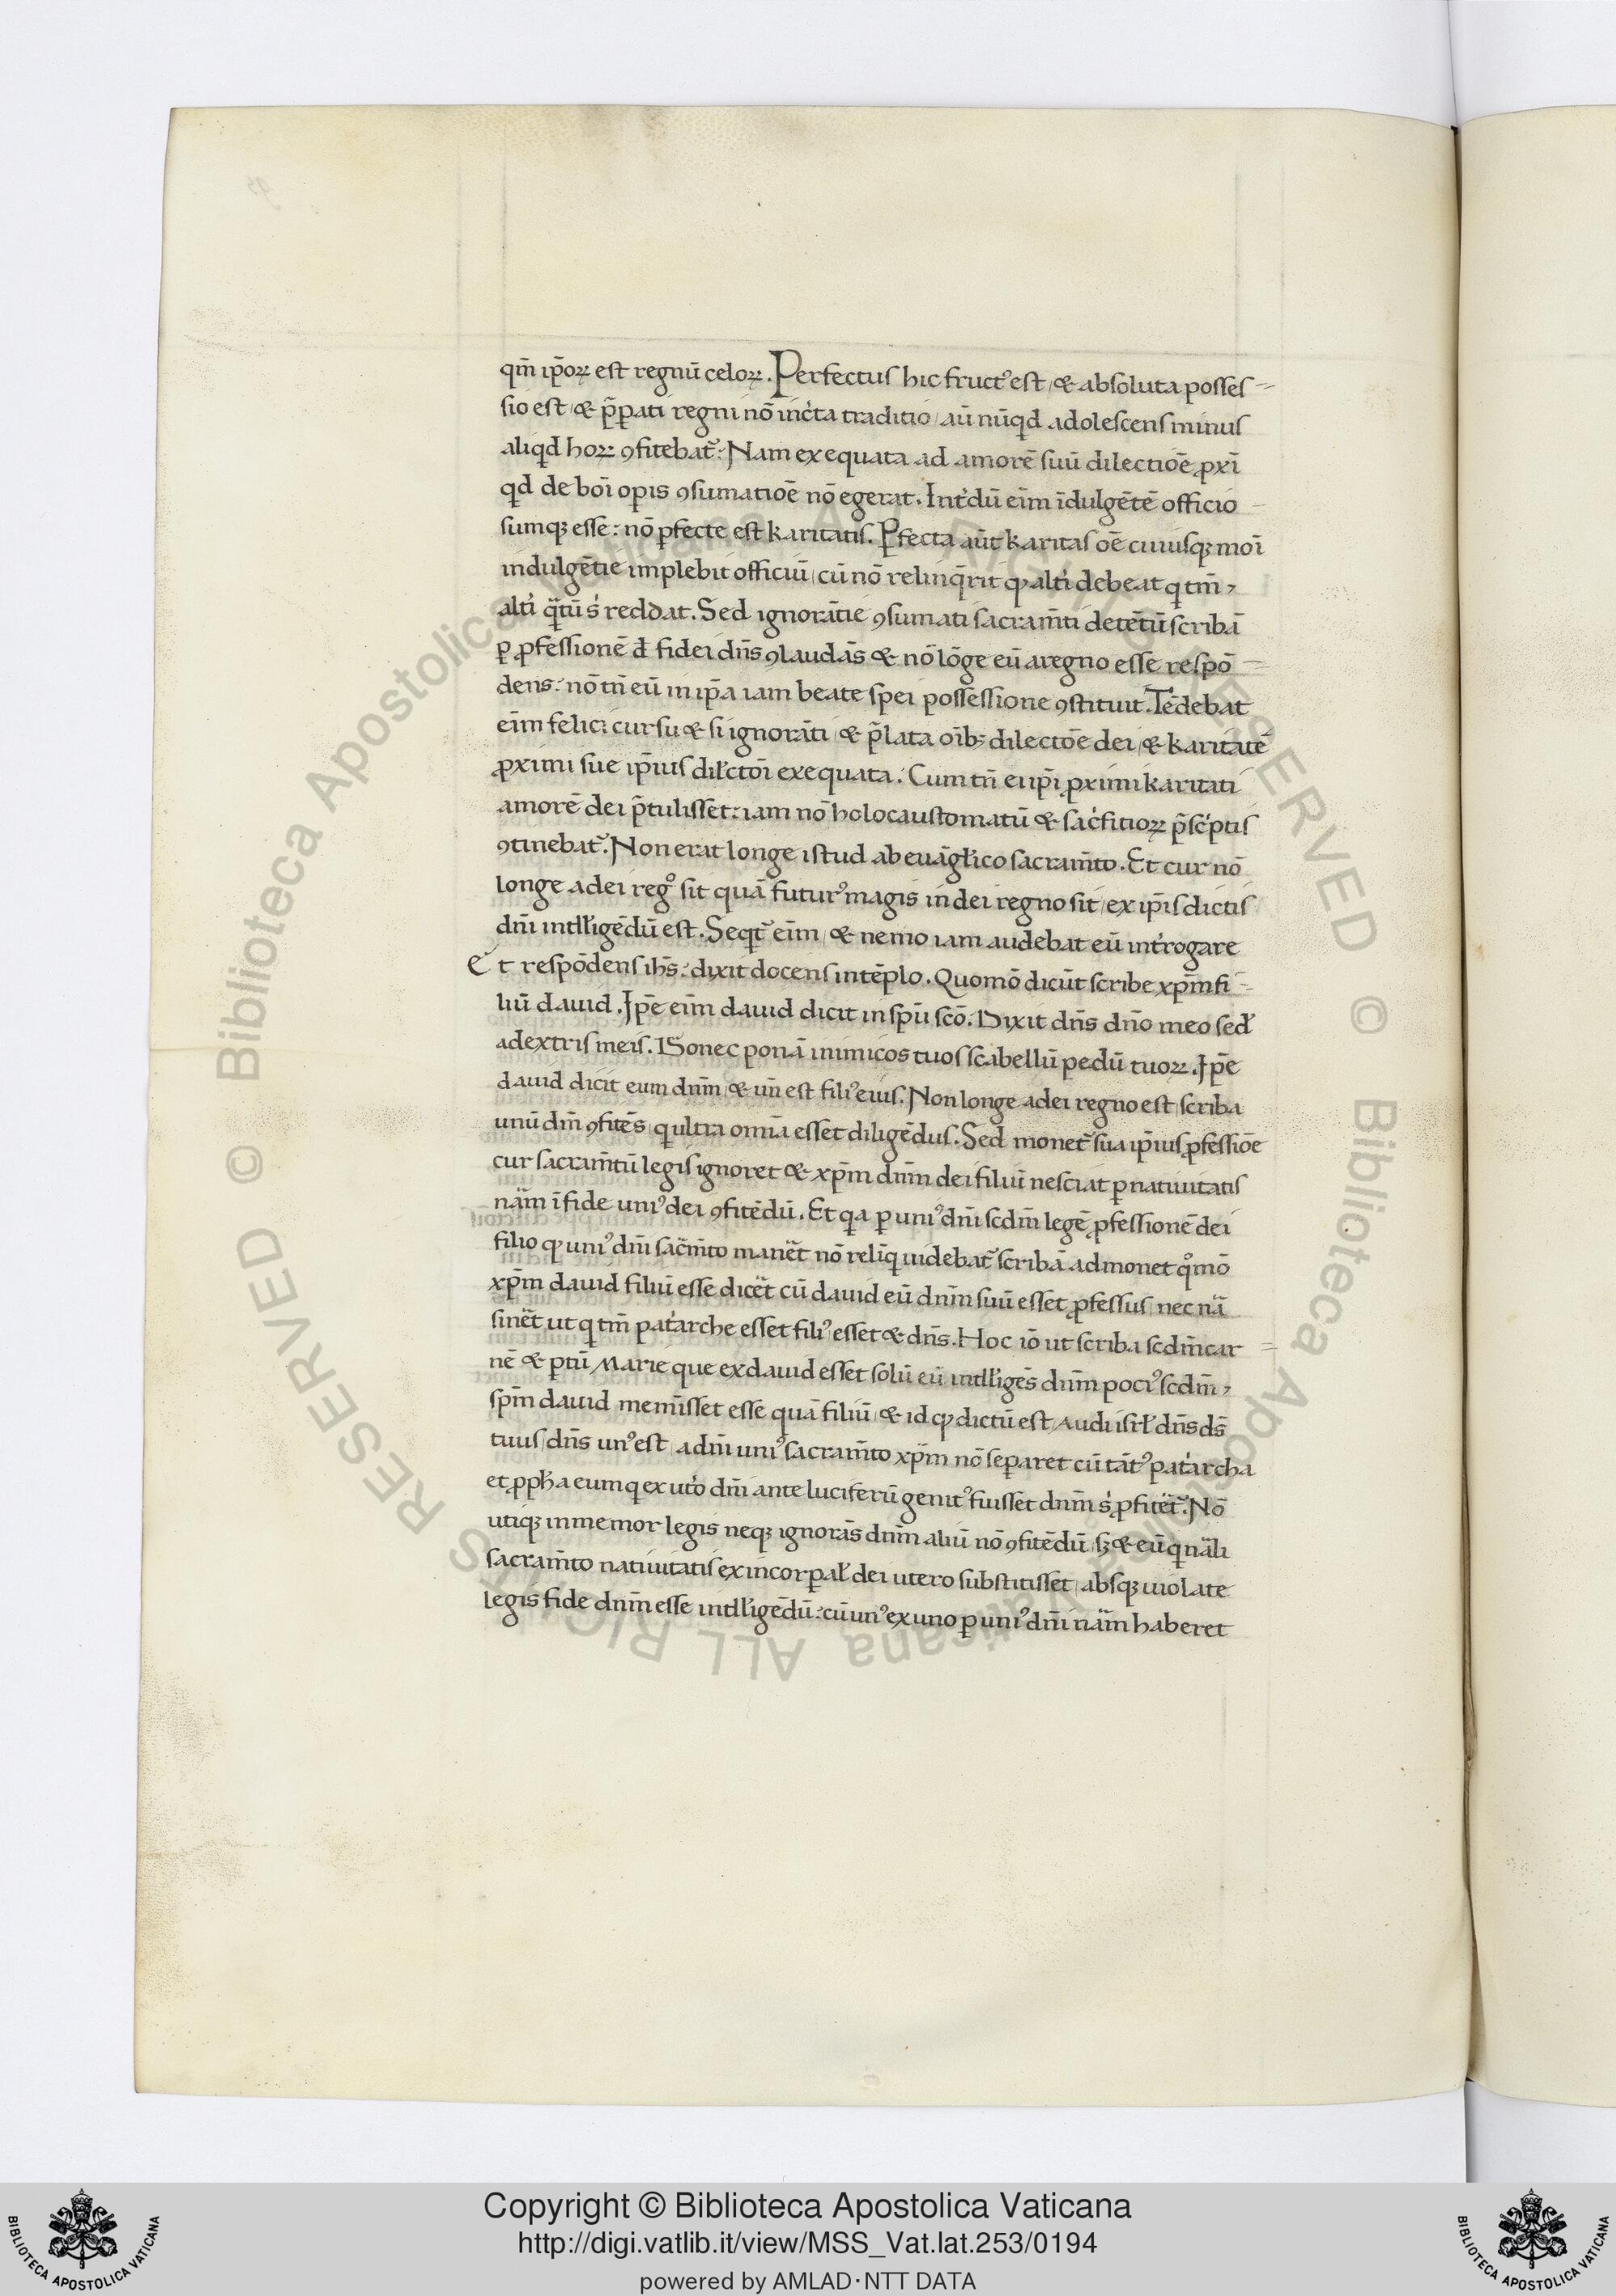 qm̄ ip̄oꝝ est regnū celoꝝ. Perfectus hic fructꝰ est, & absoluta posses-
sio est, & p̄ꝑati regni nō incͥta traditio, aū nūqͥd adolescens minus
aliqͥd hoꝝ ꝯfitebat᷑: Nam exequata ad amorē suū dilectiōe ꝓxī
qͥd de boī oꝑis ꝯsumatiōe nō egerat. Int͛dū eīm īdulgētē officio
sumqꝫ esse: nō ꝑfecte est karitatis. Ꝑfecta aūt karitas oē cuiusqꝫ moī
indulgētie implebit officiū, cū nō relinq̄rit qͥ alt͛i debeat q tm̄,
alt͛i qͣ̄tū s͛ reddat. Sed ignorātie ꝯsumati sacram̄ti detētū scribā
ꝑ ꝓfessionē đ fidei dn̄s ꝯlaudās & nō lōge eū aregno esse respō
dens: nō tn̄ eū in ip̄a iam beate spei possessione ꝯstituit. Tēdebat
eīm felici cursu & si ignorāti, & p̄lata oīb; dilectōe dei, & karitatē
ꝓximi sue ip̄ius diłctōi exequata. Cum tn̄ e ip̄i ꝓximi karitati
amorē dei p̄tulisset: iam nō holocaustomatū & sac͛fitioꝝ p̄scͥptis
ꝯtinebat᷑. Non erat longe istud ab euāgłico sacram̄to. Et cur nō
longe adei regͦ sit quā futurꝰ magis in dei regno sit, ex ip̄is dictis
dn̄i intłłigēdū est. Seqͥt᷑ eīm, & nemo iam audebat eū int͛rogare
Et respōdens ih̄s: dixit docens intēplo. Quomō dicūt scribe xp̄m fi-
liū dauid. Ip̄e eīm dauid dicit in spū scō. Dixit dn̄s dn̄o meo sed̵
adextris meis. Donec ponā inimicos tuos scabellū pedū tuoꝝ. Ip̄e
dauid dicit eum dn̄m, & un̄ est filiꝰ eius. Non longe adei regno est, scriba
unū dm̄ ꝯfitēs, q ultra omīa esset diligēdus. Sed monet᷑ sūa ip̄ius ꝓfessiōe
cur sacram̄tū legis ignoret & xp̄m dn̄m dei filiū nesciat ꝑ natiuitatis
nāͫ ī fide uniꝰ dei ꝯfitēdū. Et qͥa ꝑ uniꝰ dn̄i scdm̄ legē ꝓfessionē dei
filio qͥ uniꝰ dn̄i sac̄m̄to manēt nō reliq̄ uidebat᷑ scribā admonet qͦmō
xp̄m dauid filiū esse dicēt cū dauid eū dn̄m suū esset ꝓfessus, nec nāͣ
sinēt ut q tm̄ pat͛arche esset filiꝰ esset & dn̄s. Hoc iō ut scriba scdm̄ car
nē & ꝑtū Marie que ex dauid esset solū eū intłłigēs dn̄m pociꝰ scdm̄,
spm̄ dauid memīsset esse quā filiū, & id qͥ dictū est, Audi isrł dn̄s ds̄
tuus, dn̄s unꝰ est, adn̄i uniꝰ sacram̄to xp̄m nō separet cū tātꝰ pat͛archa
et ꝓph̄a eum q ex ut͛o dn̄i ante luciferū genitꝰ fuisset dn̄m s͛ ꝓfitēt᷑. Nō
utiqꝫ inmemor legis neqꝫ ignorās dn̄m aliū nō ꝯfitēdū, sꝫ & eū q nāͣli
sacram̄to natiuitatis ex incorꝑał dei utero substitisset, absqꝫ uiolate
legis fide dn̄m esse intłłigēdū: cū unꝰ ex uno ꝑ uniꝰ dn̄i nāͫ haberet
© Biblioteca Apostolica Vaticana ALL RIGHTS RESERVED
Copyright © Biblioteca Apostolica Vaticana
http://digi.vatlib.it/view/MSS_Vat.lat.253/0194
powered by AMLAD·NTT DATA
BIBLIOTECA APOSTOLICA VATICANA
BIBLIOTECA APOSTOLICA VATICANA